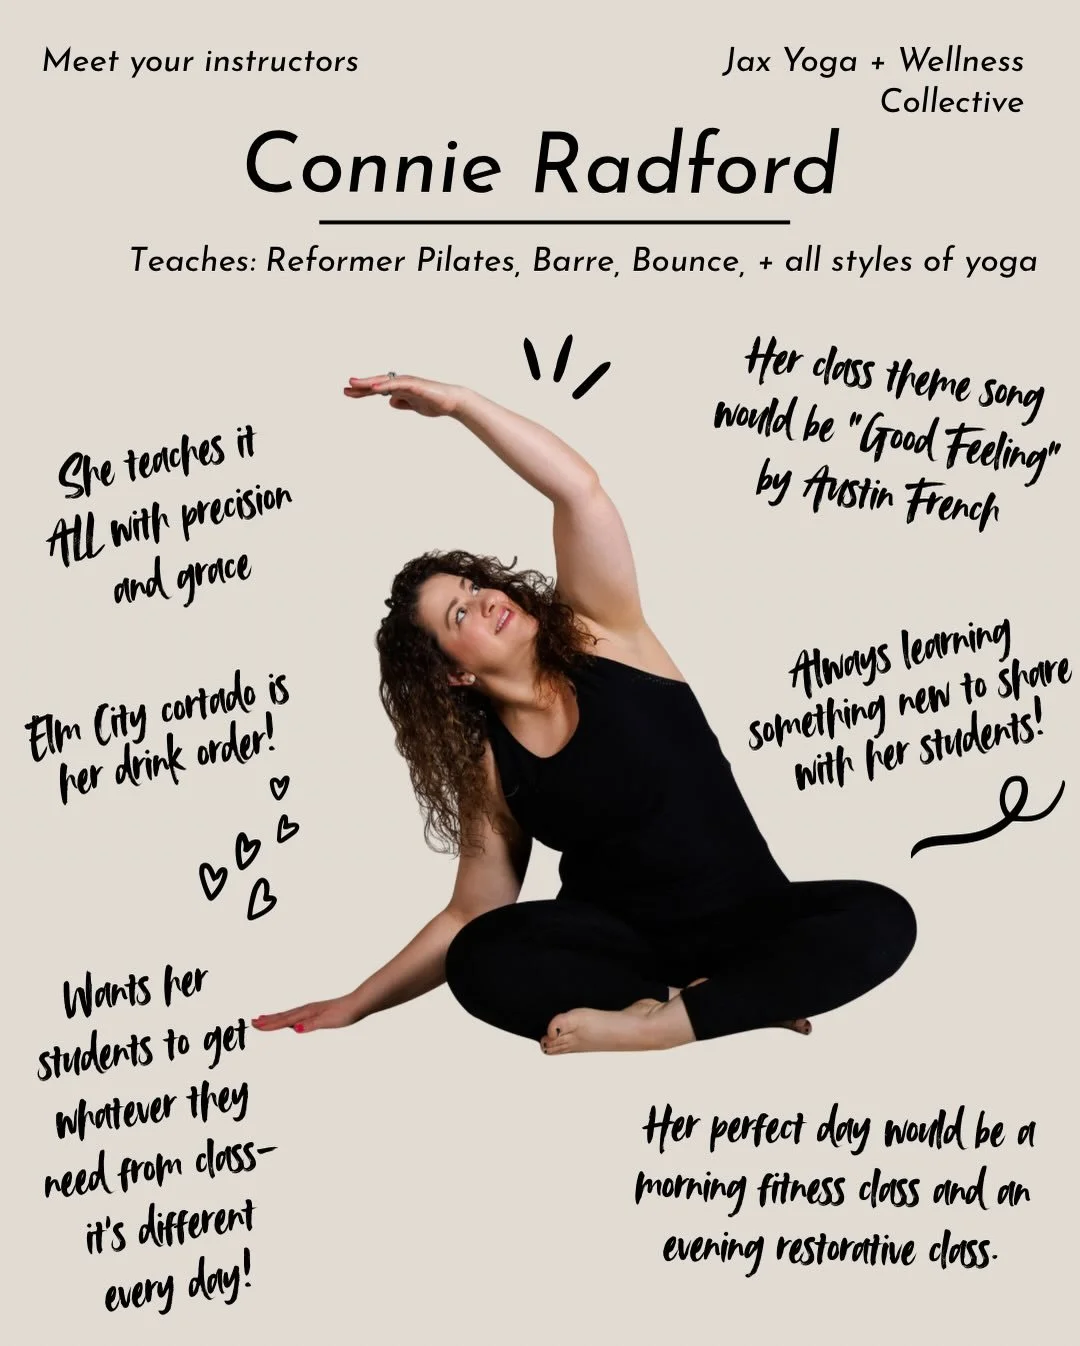 Meet your instructors
Jax Yoga + Wellness
Collective
Connie Radford
Teaches: Reformer Pilates, Barre, Bounce, + all styles of yoga
Her class theme song
would be "Good Feeling"
by Austin French
She teaches it
ALL with precision
and grace
Always learning
something new to share
with her students!
Elm City cortado is
her drink order!
Wants her
students to get
whatever they
need from class-
it's different
every day!
Her perfect day would be a
morning fitness class and an
evening restorative class.